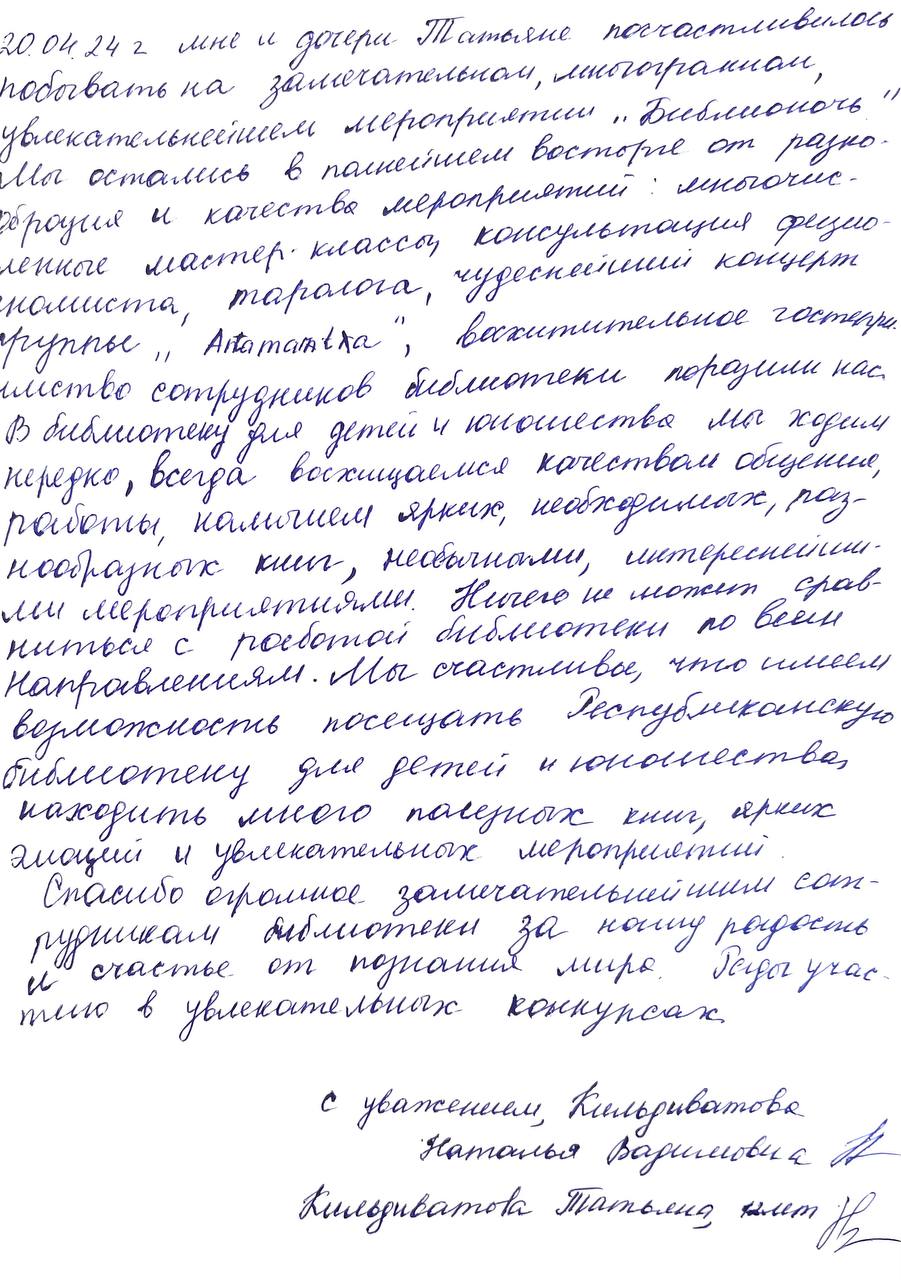 20.04.24 г мне и дочери Татьяне посчастливилось
побывать на замечательном, многогранном,
увлекательнейшем мероприятии „Библионочь"
Мы остались в полнейшем восторге от разно-
образия и качества мероприятий: многочис-
ленные мастер-классы, консультация физио-
номиста, таролога, чудеснейший концерт
группы „ ", восхитительное гостепри-
имство сотрудников библиотеки поразили нас
В библиотеку для детей и юношества мы ходим
нередко, всегда восхищаемся качеством общения,
работы, наличием ярких, необходимых, раз-
нообразных книг, необычными, интереснейши-
ми мероприятиями. Ничего не может срав-
ниться с работой библиотеки по всем
направлениям. Мы счастливы, что имеем
возможность посещать Республиканскую
библиотеку для детей и юношества,
находить много полезных книг, ярких
эмоций и увлекательных мероприятий.
Спасибо огромное замечательнейшим сот-
рудникам библиотеки за нашу радость
и счастье от познания мира. Рады учас-
тию в увлекательных конкурсах
с уважением, Кильдиватова
Наталья Вадимовна
Кильдиватова Татьяна, лет